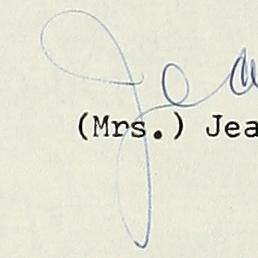 Jea
(Mrs.) Jea